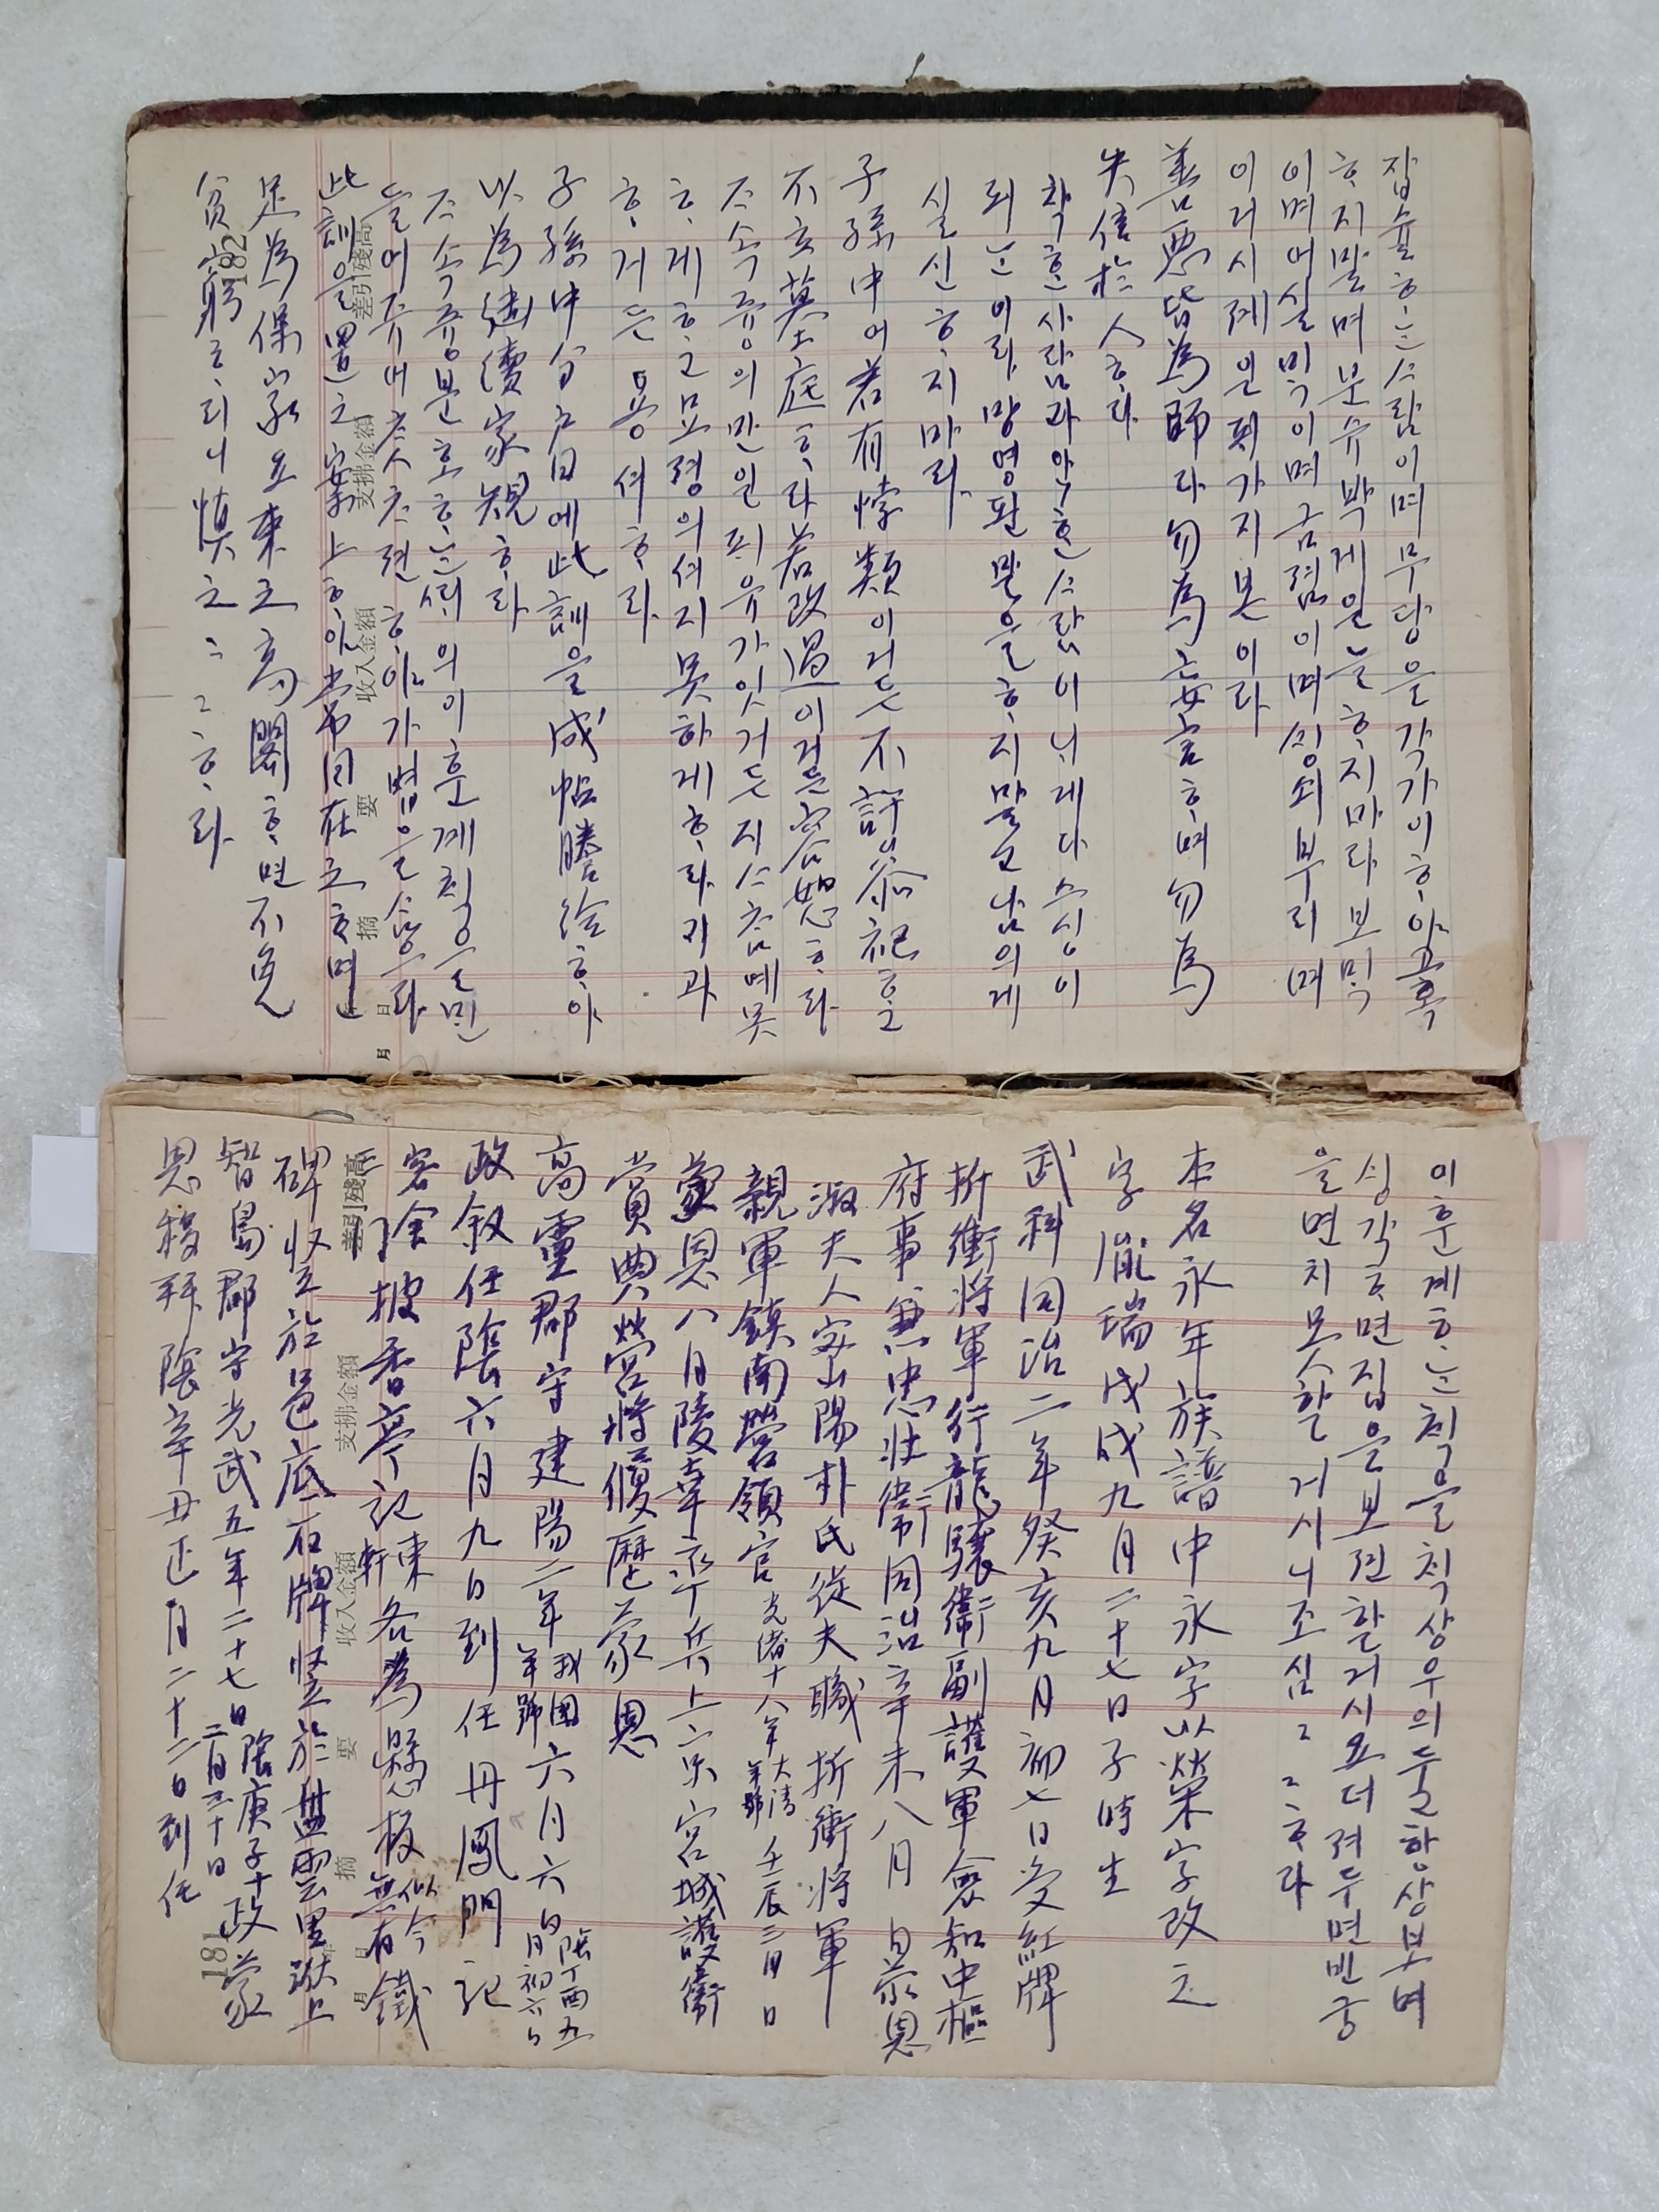 잡슐ᄒᆞᄂᆞᆫ ᄉᆞ람이며 무당을 각가이 ᄒᆞ야 고혹
ᄒᆞ지 말며 분슈 박게 일을 ᄒᆞ지 마라 보믹
이며 어살믹이며 금졈이며 싱쇠부리며
이거시 제일 픽가지본이라
善惡皆爲師라 勿爲妄言ᄒᆞ며 勿爲
失信於人ᄒᆞ라
착ᄒᆞᆫ 사람과 악ᄒᆞᆫ ᄉᆞ람이 니게 다 스싱이
되ᄂᆞᆫ이라 망영된 말을 ᄒᆞ지 말고 남의게
실신ᄒᆞ지 마라
子孫中어 若有悖類이거든 不許參祀ᄒᆞ고
不立墓庭ᄒᆞ라 若改過이거든 容恕ᄒᆞ라
ᄌᆞ속 즁의 만일 픠유가 잇거든 지ᄉᆞ 참녜 못
ᄒᆞ게 ᄒᆞ고 묘졍의 셔지 못하게 ᄒᆞ라 기과
ᄒᆞ거든 용셔ᄒᆞ라
子孫中 分戶日에 此訓을 成帖謄給ᄒᆞ야
以爲遺續家規ᄒᆞ라
ᄌᆞ속 즁 분호ᄒᆞᄂᆞᆫ 쎠의 이 훈계칙을 민
들어 쥬어 ᄌᆞᄌᆞ손젼ᄒᆞ야 가볍을 삼으라
此訓을 置之案上ᄒᆞ야 常目在之ᄒᆞ며
足爲保家요 束之高閣ᄒᆞ면 不免
貧窮ᄒᆞ리니 愼之〻〻ᄒᆞ라
182
差引残高
支拂金額
收入金額
摘 要
月 日
이 훈계ᄒᆞᄂᆞᆫ 칙을 칙상 우의 두고 항상 보며
싱각ᄒᆞ면 집을 보젼할 거시요 더져두면 빈궁
을 면치 못할 거시니 조심〻〻ᄒᆞ라
本名永年 族譜中永字以榮字改之
字胤瑞 戊戌九月二十七日子時生
武科同治二年癸亥九月初七日受紅牌
折衝將軍行龍驤衛副護軍僉知中樞
府事兼忠壯衛同治辛未八月 日蒙恩
淑夫人密山陽朴氏從夫職折衝將軍
親軍鎭南營領官 光緖十八年 大淸年號 壬辰三月 日
蒙恩八月陵幸率兵上京宮城護衛
賞典營將履歷蒙恩
高靈郡守建陽二年 我國年號 六月六日 陰丁酉五月初六日
政敘任陰六月九日到任丹鳳門記
客舍披香亭記東軒 各爲懸板 似今無有 鐵
碑竪於邑底石碑竪於盤雲里㙜上
智島郡守光武五年二十七日 陰庚子十二月三十日 政蒙
恩移拜陰辛丑正月二十二日到任
181
差引残高
支拂金額
收入金額
摘 要
月 日